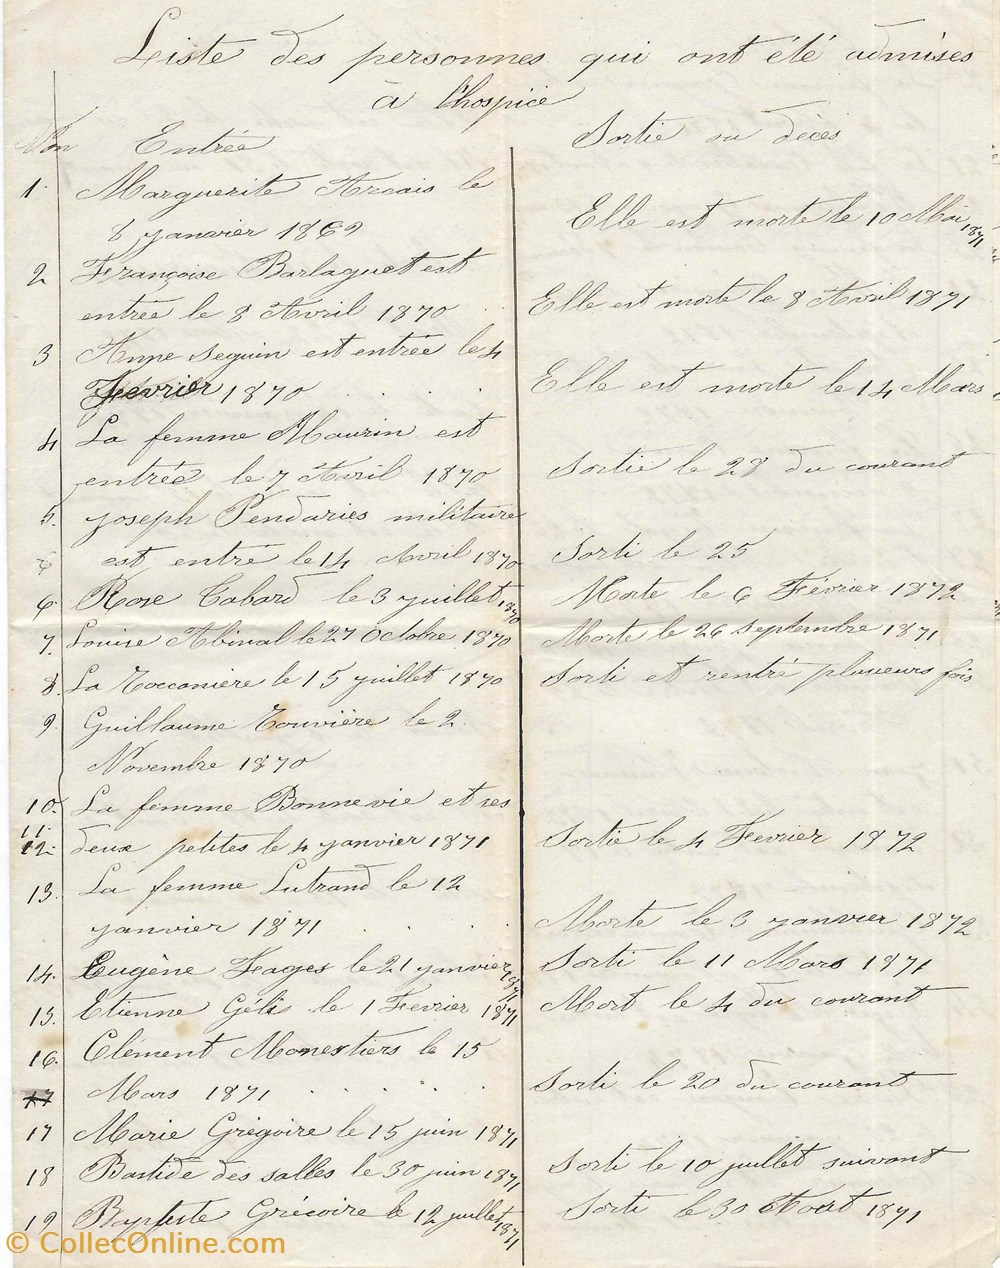 Liste des personnes qui ont été admises
à l'hospice
Entrée
Sortie ou décès
1. Marguerite Arcais le
8 janvier 1869
Elle est morte le 10 Mai 1871
2 Françoise Barlaguet est
entrée le 8 Avril 1870 . .
Elle est morte le 8 Avril 1871
3 Anne Seguin est entrée le 4
Fevrier 1870 . . . .
Elle est morte le 14 Mars
4 La femme Maurin est
entrée le 7 Avril 1870
Sortie le 28 du courant
5. Joseph Pendaries militaire
6 est entré le 14 Avril 1870
Sorti le 25
6. Rose Cabard le 3 juillet 1870
Morte le 6 Février 1872
7. Louise Abinal le 27 Octobre 1870
Morte le 26 septembre 1871
8. La Toccanière le 15 juillet 1870
Sorti et rentré plusieurs fois
9. Guillaume Touvière le 2.
Novembre 1870
10. La femme Bonnevie et ses
11.
12. deux petites le 4 janvier 1871
Sortie le 4 Fevrier 1872
13. La femme Lutrand le 12
janvier 1871 . . . .
Morte le 3 janvier 1872
14. Eugène Fages le 21 janvier 1871
Sorti le 11 Mars 1871
15. Etienne Gélis le 1 Fevrier 1871
Mort le 4 du courant
16. Clément Monestiers le 15
17 Mars 1871 . . . . .
Sorti le 20 du courant
17 Marie Grégoire le 15 juin 1871
18 Bastide des salles le 30 juin 1871
Sorti le 10 juillet suivant
19 Baptiste Grégoire le 12 juillet 1871
Sorti le 30 Aout 1871
© CollecOnline.com